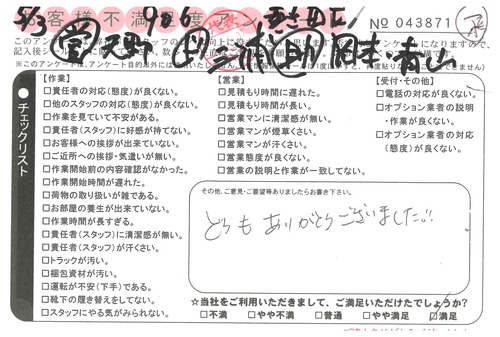 お客様不満足度アンケート
5/3
№ 043871
チェックリスト
【作業】
□責任者の対応(態度)が良くない。
□他のスタッフの対応(態度)が良くない。
□作業を見ていて不安がある。
□責任者(スタッフ)に好感が持てない。
□お客様への挨拶が出来ていない。
□ご近所への挨拶・気遣いが無い。
□作業開始前の内容確認がなかった。
□作業開始時間が遅れた。
□荷物の取り扱いが雑である。
□お部屋の養生が出来ていない。
□作業時間が長すぎる。
□責任者(スタッフ)に清潔感が無い。
□責任者(スタッフ)が汗くさい。
□トラックが汚い。
□梱包資材が汚い。
□運転が不安(下手)である。
□靴下の履き替えをしてない。
□スタッフにやる気がみられない。
【営業】
□見積もり時間に遅れた。
□見積もり時間が長い。
□営業マンに清潔感が無い。
□営業マンが煙草くさい。
□営業マンが汗くさい。
□営業態度が良くない。
□営業の説明と作業が一致してない。
【受付・その他】
□電話の対応が良くない。
□オプション業者の説明・作業が良くない。
□オプション業者の対応(態度)が良くない。
その他、ご意見・ご要望等ありましたらお書き下さい。
どうもありがとうございました!!
☆当社をご利用いただきまして、ご満足いただけたでしょうか?
□不満 □やや不満 □普通 □やや満足 □満足